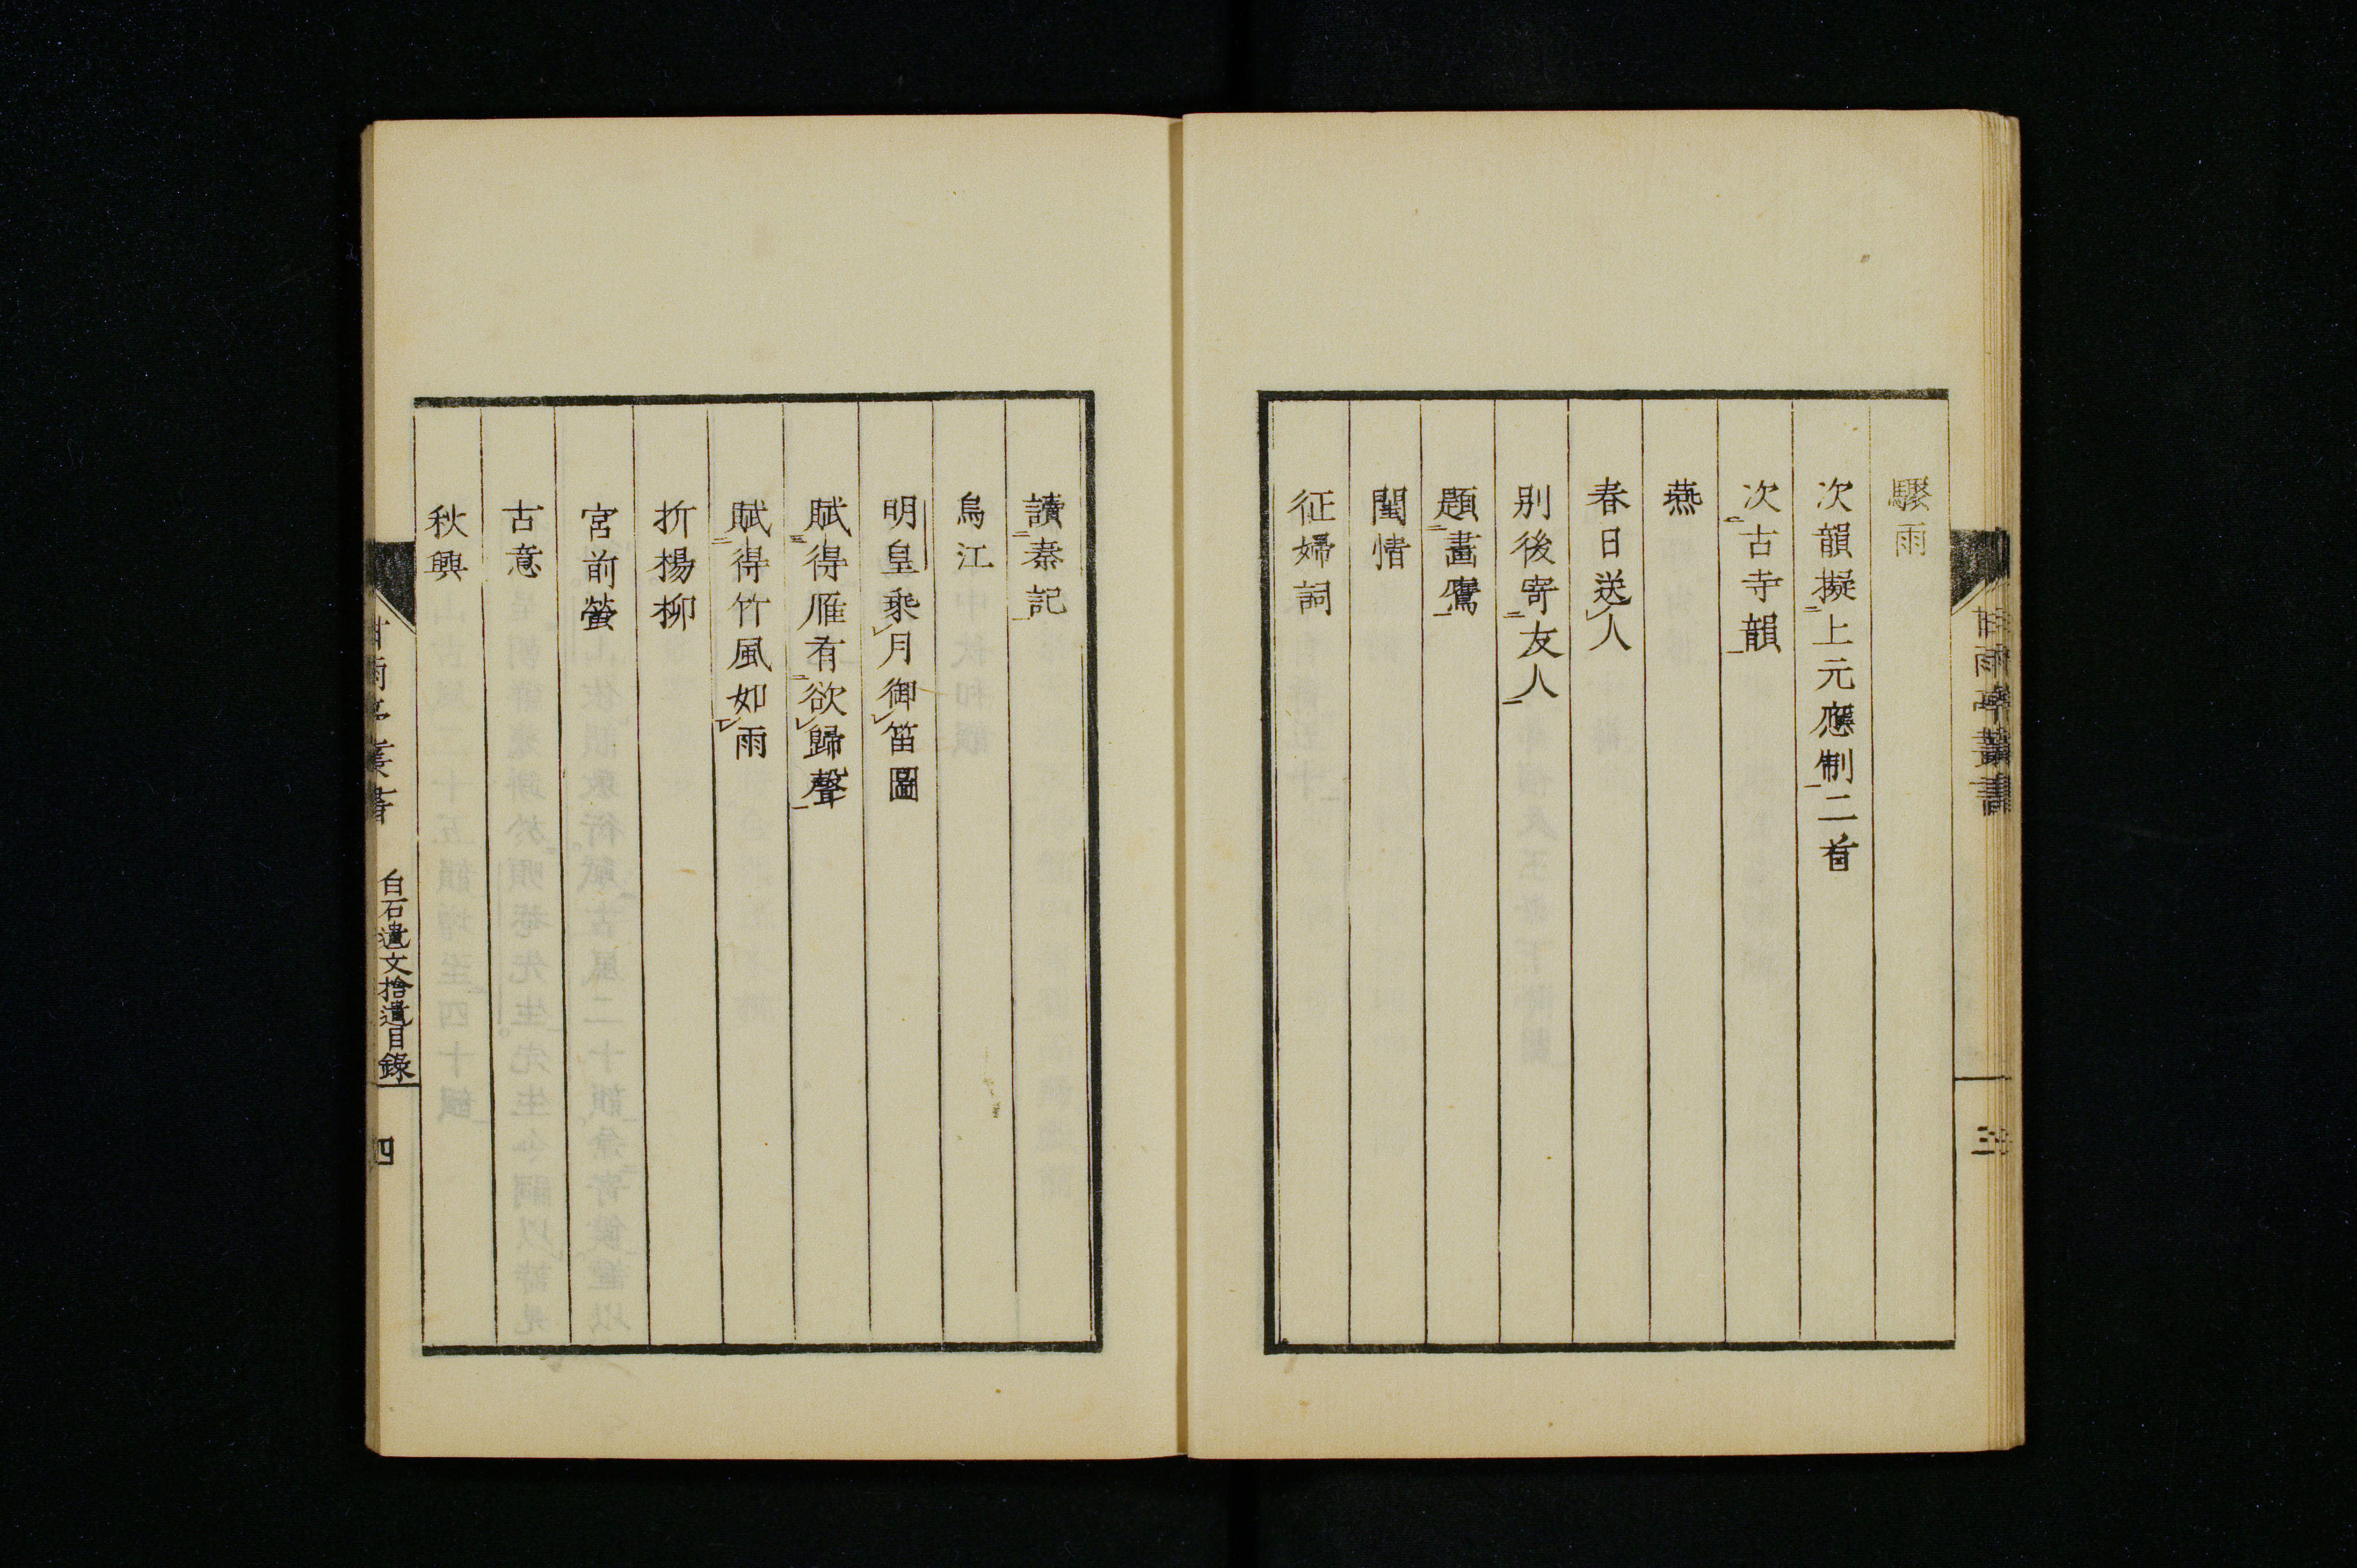 驟雨
次韻擬上元應制二首
次古寺韻
燕
春日送人
別後寄友人
題畫鷹
閨情
征婦詞
甘雨亭叢書
三
讀秦記
烏江
明皇乘月御笛圖
賦得雁有欲歸聲
賦得竹風如雨
折楊柳
宮前螢
古意
秋興
甘雨亭叢書
白石遺文拾遺目錄
四